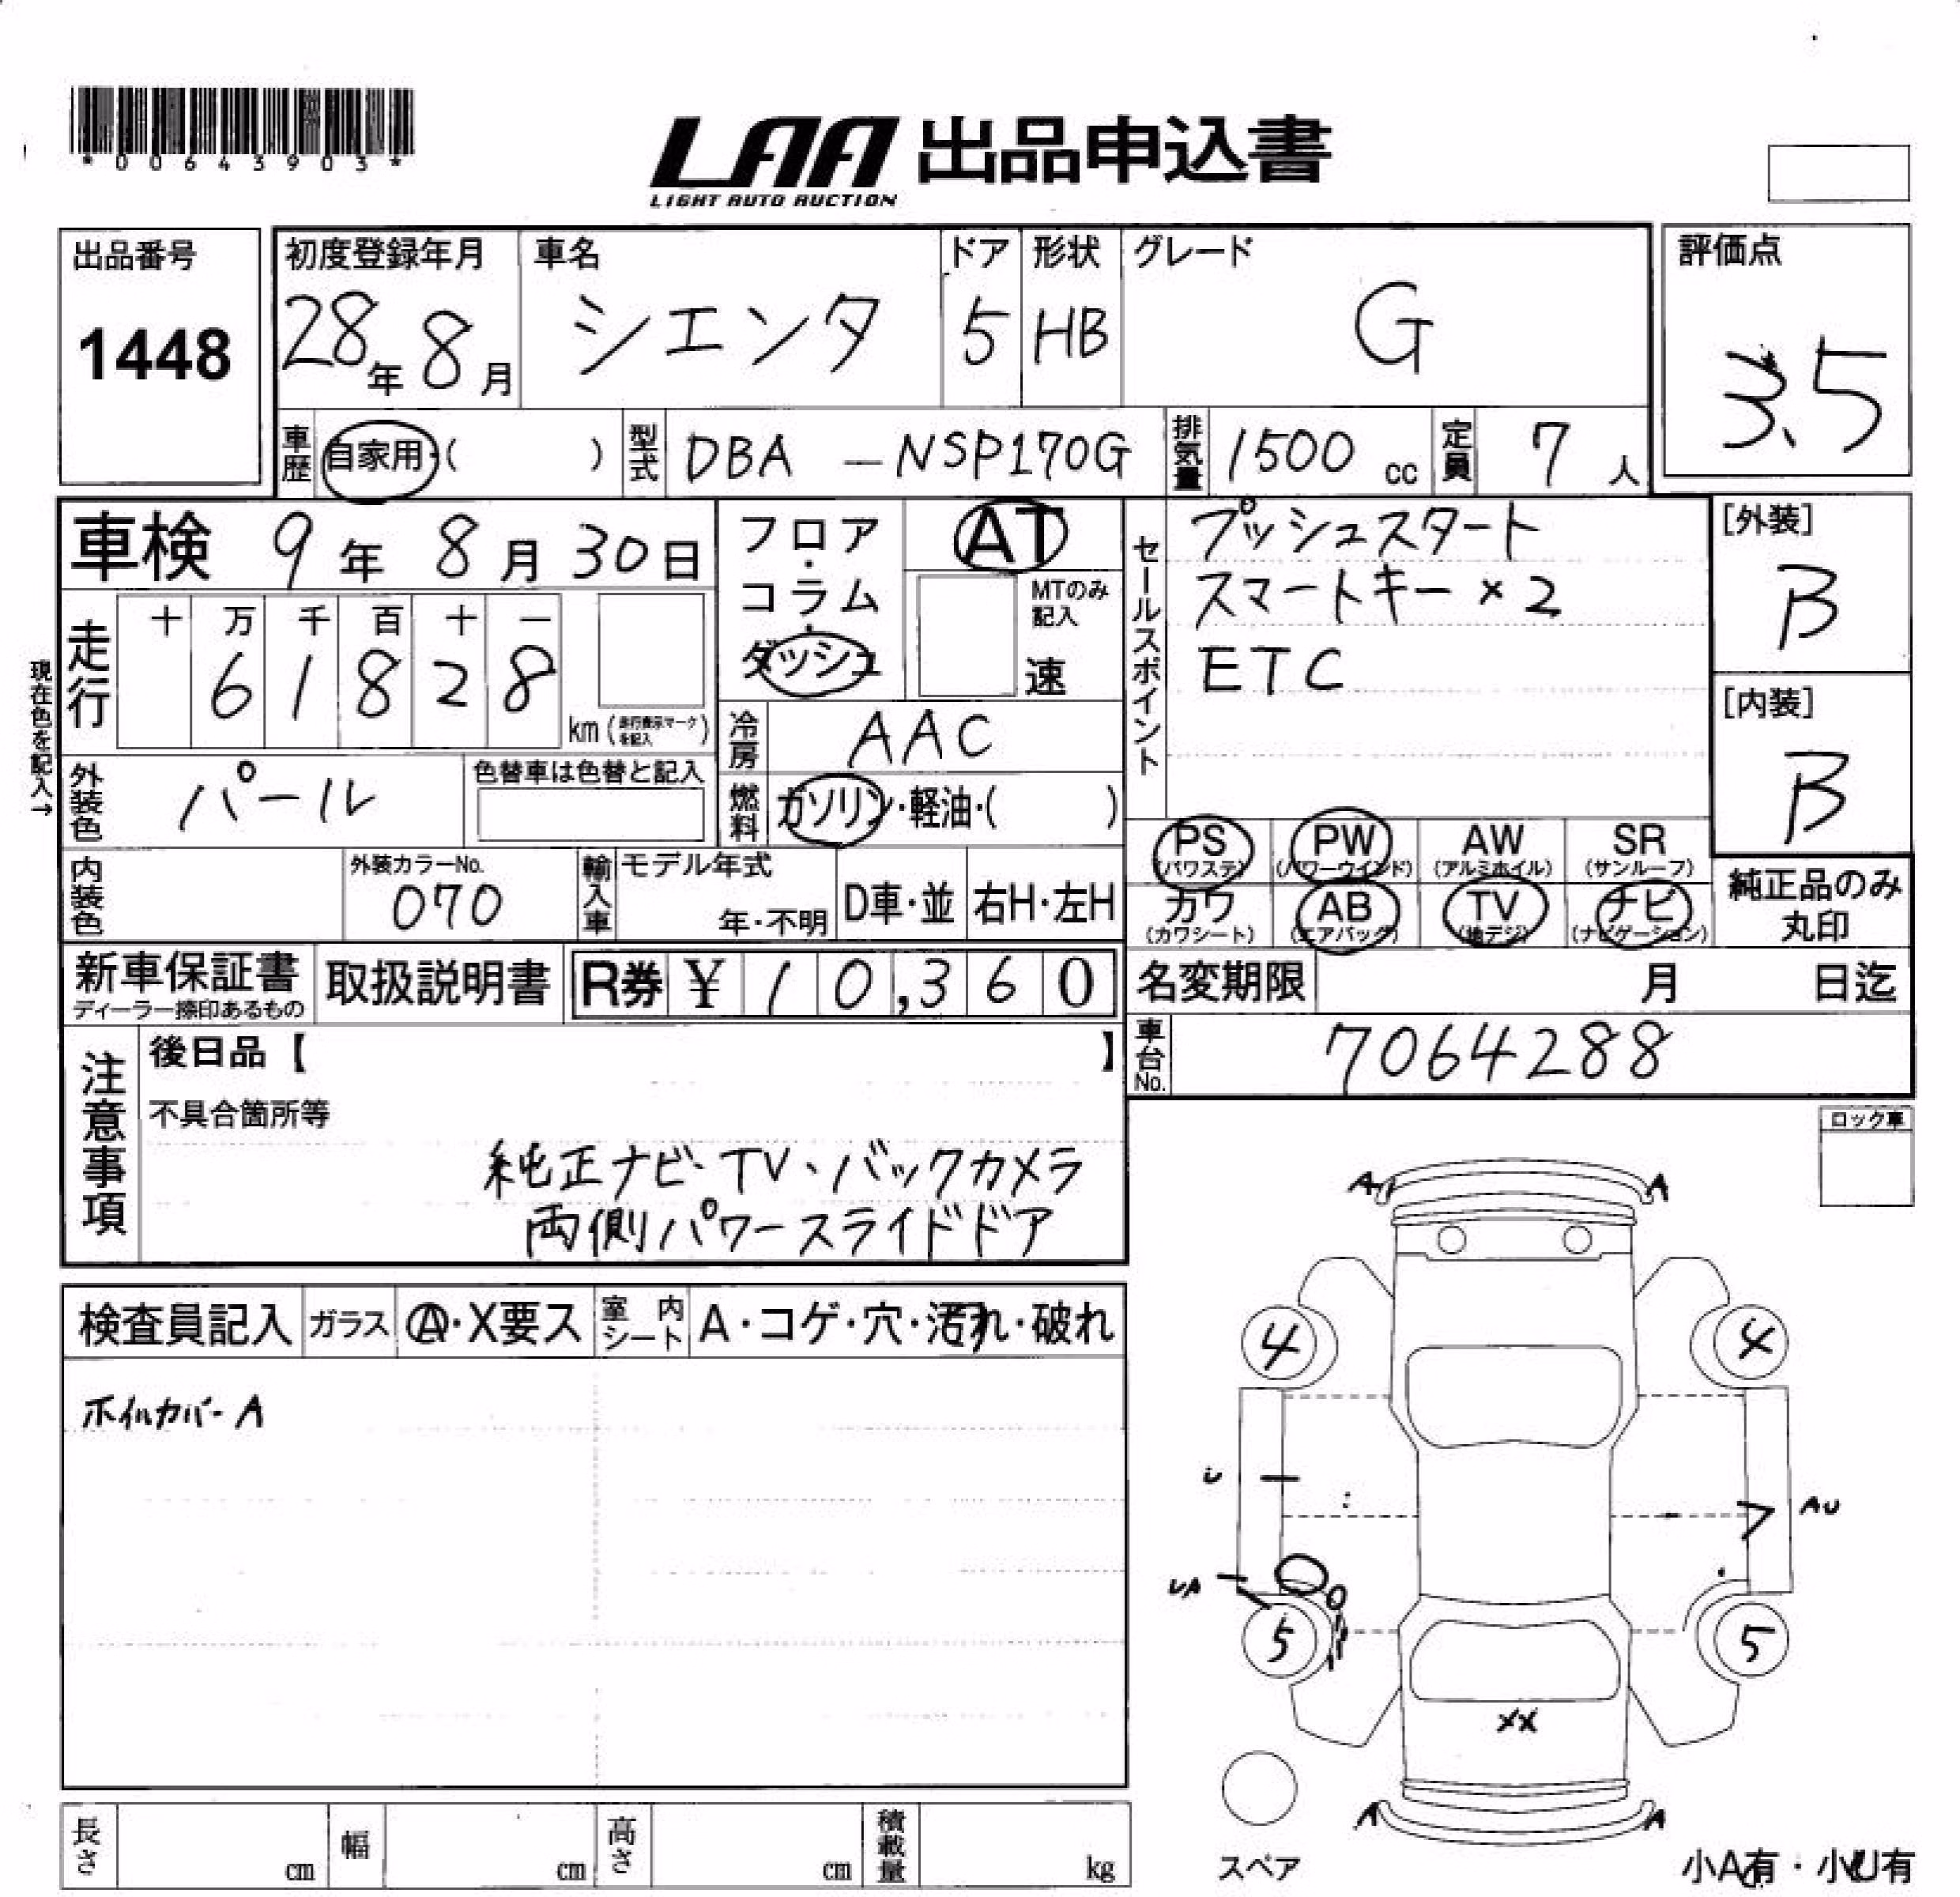 *00643903*
LAA 出品申込書
LIGHT AUTO AUCTION
出品番号
1448
初度登録年月
28年8月
車名
シエンタ
ドア
5
形状
HB
グレード
G
評価点
3.5
車歴
自家用・( )
型式
DBA -NSP170G
排気量
1500 cc
定員
7 人
車検 9年 8月 30日
現在色を記入→
走行
十 万 千 百 十 一
6 1 8 2 8
km (走行表示マークを記入)
フロア・コラム・ダッシュ
AT
MTのみ記入
速
冷房
AAC
燃料
ガソリン・軽油・( )
セールスポイント
プッシュスタート
スマートキー×2
ETC
[外装]
B
[内装]
B
外装色
パール
色替車は色替と記入
内装色
外装カラーNo.
070
輸入車
モデル年式
年・不明
D車・並
右H・左H
PS
(パワステ)
PW
(パワーウインド)
AW
(アルミホイル)
SR
(サンルーフ)
カワ
(カワシート)
AB
(エアバック)
TV
(地デジ)
ナビ
(ナビゲーション)
純正品のみ
丸印
新車保証書
ディーラー捺印あるもの
取扱説明書
R券 ¥ 10,360
名変期限 月 日迄
車台No.
7064288
注意事項
後日品【 】
不具合箇所等
純正ナビ・TV・バックカメラ
両側パワースライドドア
ロック車
検査員記入
ガラス
A・X要ス
室内シート
A・コゲ・穴・汚れ・破れ
ホイルカバーA
A A
4 4
U
AU
UA
5 5
XX
A A
スペア
小A有・小U有
長さ cm
幅 cm
高さ cm
積載量 kg